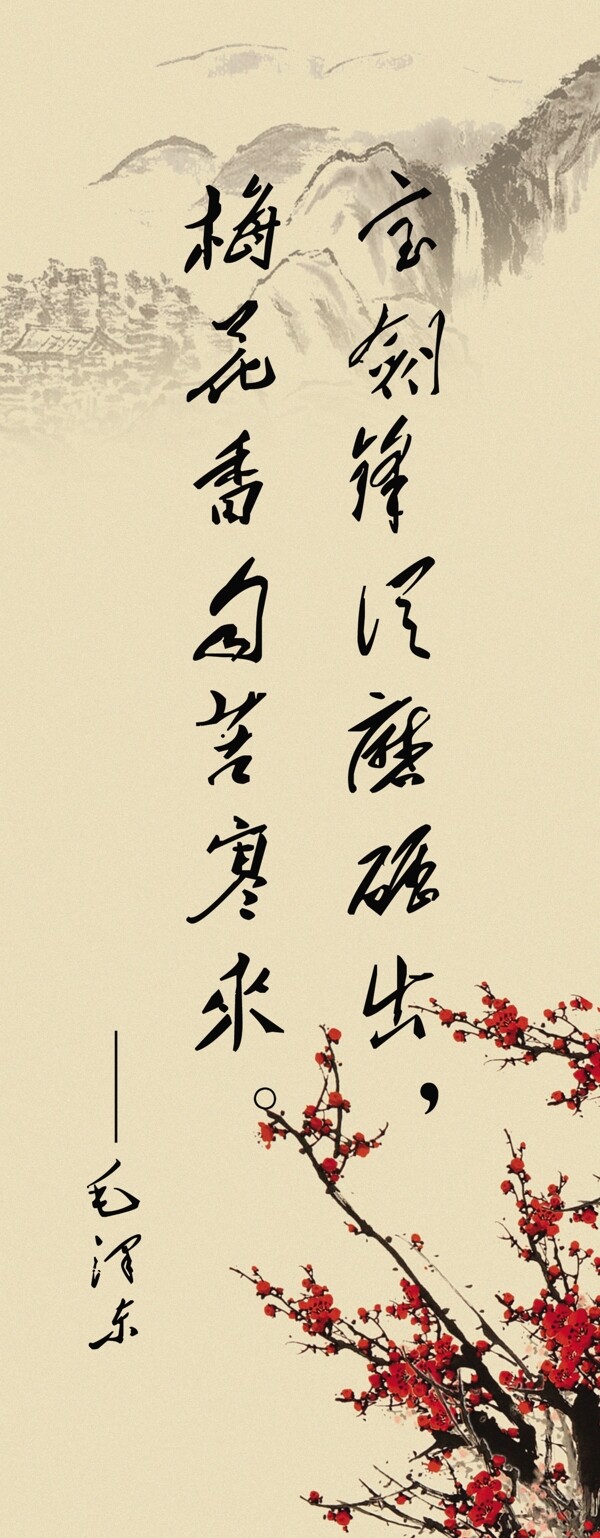 宝劍锋従磨砺出，
梅花香自苦寒來。
——毛泽东